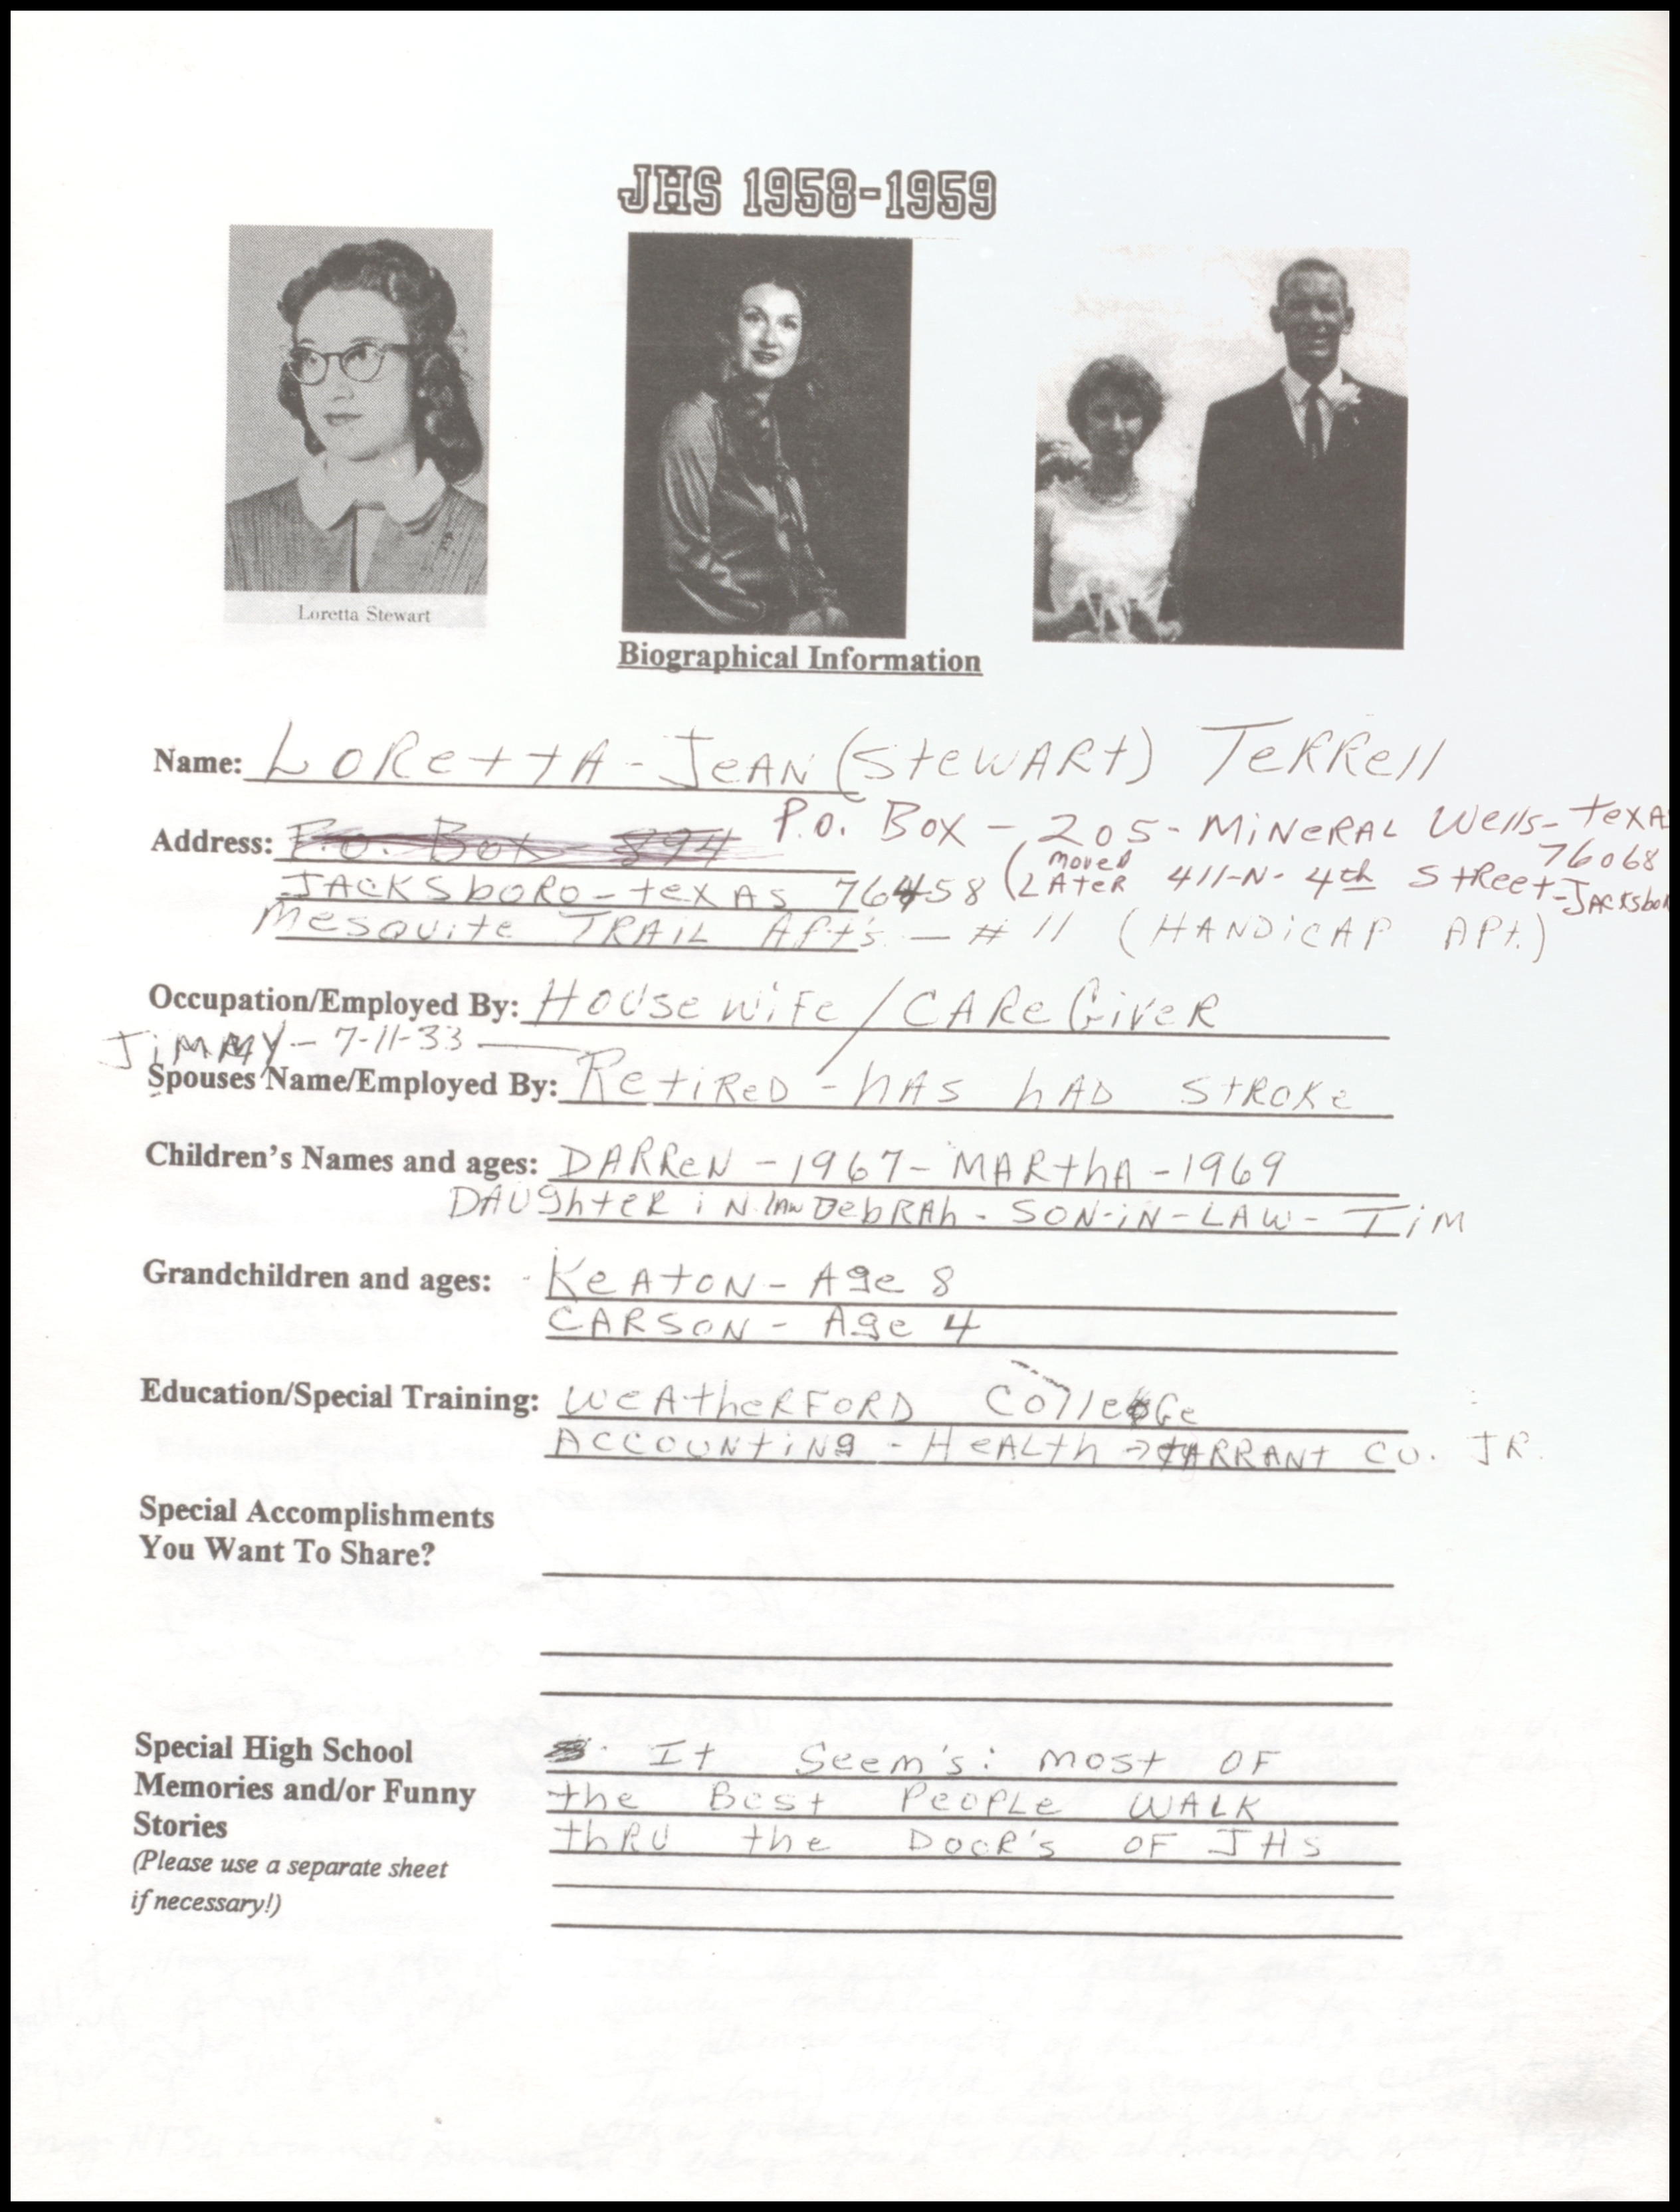 JHS 1958-1959
Loretta Stewart
Biographical Information
Name: LoRettA - JeAN (StewARt) TeRRell
Address: P.O. Box - 894 P.O. Box - 205 - MiNeRAL Wells - texAs
76068
JAcKSboRo - texAS 76458 (moved LAteR 411-N- 4th StReet - JAcKsboR
Mesquite TRAIL Apt's - # 11 (HANDiCAP APt.)
Occupation/Employed By: HouSewiFe / CARe GiveR
JiMMY - 7-11-33
Spouses Name/Employed By: RetiReD - hAS hAD StRoKe
Children's Names and ages: DARReN - 1967 - MARthA - 1969
DAUghteR iN lAw DebRAh - SON-iN-LAW - TiM
Grandchildren and ages: KeAtoN - Age 8
CARSoN - Age 4
Education/Special Training: WeAtheRFoRD ColleGe
ACCOUNtiNg - HeALth → tARRANt CO. JR.
Special Accomplishments
You Want To Share?
Special High School It Seem's: most OF
Memories and/or Funny the Best PeoPLe WALK
Stories thRU the DooR's OF JHS
(Please use a separate sheet
if necessary!)